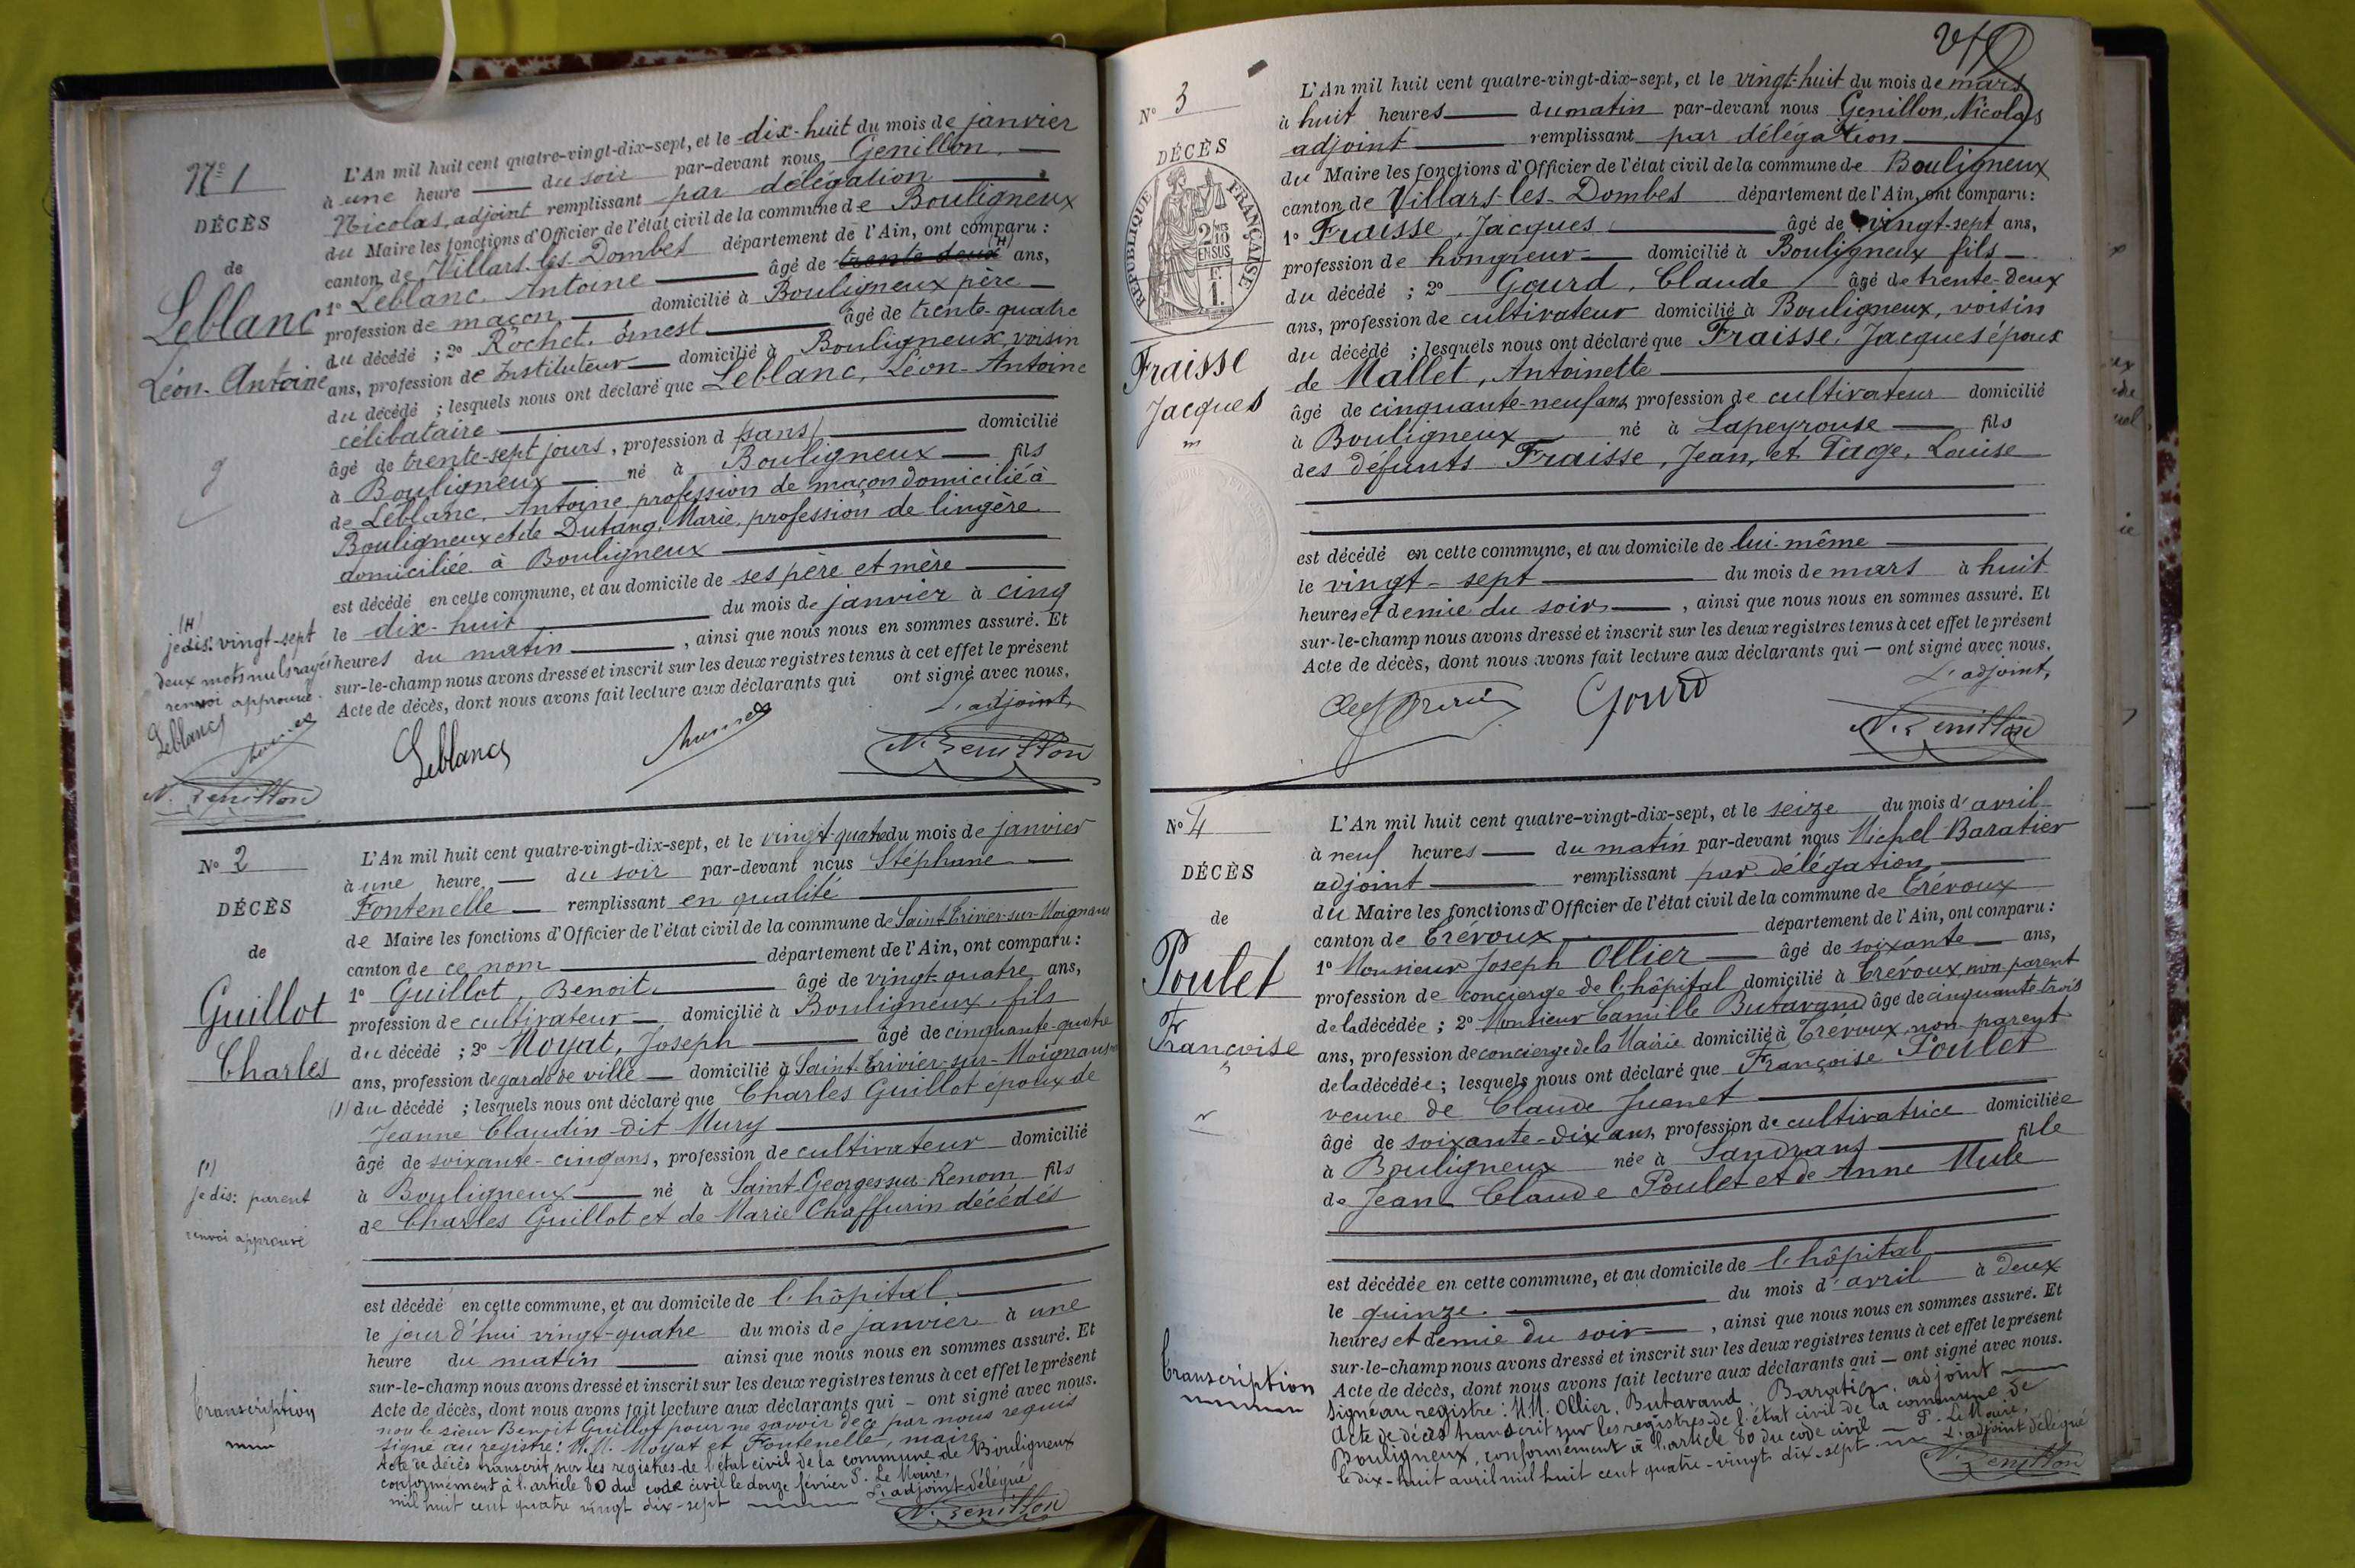 Nº 1
DÉCÈS
de
Leblanc
Léon-Antoine
L'An mil huit cent quatre-vingt-dix-sept, et le dix-huit du mois de janvier
à une heure du soir par-devant nous Genillon,
Nicolas, adjoint remplissant par délégation
du Maire les fonctions d'Officier de l'état civil de la commune de Bouligneux
canton de Villars-les-Dombes département de l'Ain, ont comparu :
1º Leblanc, Antoine âgé de trente-deux (H) ans,
profession de maçon domicilié à Bouligneux père
du décédé ; 2º Rochet, Ernest âgé de trente-quatre
ans, profession de Instituteur domicilié à Bouligneux, voisin
du décédé ; lesquels nous ont déclaré que Leblanc, Léon-Antoine
célibataire
âgé de trente-sept jours, profession d sans domicilié
à Bouligneux né à Bouligneux fils
de Leblanc, Antoine, profession de maçon domicilié à
Bouligneux et de Dutang, Marie, profession de lingère
domiciliée à Bouligneux
est décédé en cette commune, et au domicile de ses père et mère
le dix-huit du mois de janvier à cinq
heures du matin, ainsi que nous nous en sommes assuré. Et
sur-le-champ nous avons dressé et inscrit sur les deux registres tenus à cet effet le présent
Acte de décès, dont nous avons fait lecture aux déclarants qui ont signé avec nous,
L'adjoint,
Leblanc
N. Genillon
(H)
je dis: vingt-sept
deux mots nuls rayés
renvoi approuvé.
Leblanc
N. Genillon
Nº 2
DÉCÈS
de
Guillot
Charles
L'An mil huit cent quatre-vingt-dix-sept, et le vingt-quatre du mois de janvier
à une heure du soir par-devant nous Stéphane
Fontenelle remplissant en qualité
de Maire les fonctions d'Officier de l'état civil de la commune de Saint-Trivier-sur-Moignans
canton de ce nom département de l'Ain, ont comparu :
1º Guillot, Benoit âgé de vingt-quatre ans,
profession de cultivateur domicilié à Bouligneux, fils
du décédé ; 2º Moyat, Joseph âgé de cinquante-quatre
ans, profession de garde de ville domicilié à Saint-Trivier-sur-Moignans
(1) du décédé ; lesquels nous ont déclaré que Charles Guillot époux de
Jeanne Claudin dit Mury
âgé de soixante-cinq ans, profession de cultivateur domicilié
à Bouligneux né à Saint-Georges-sur-Renom fils
de Charles Guillot et de Marie Chaffurin décédés
est décédé en cette commune, et au domicile de l'hôpital
le jour d'hui vingt-quatre du mois de janvier à une
heure du matin ainsi que nous nous en sommes assuré. Et
sur-le-champ nous avons dressé et inscrit sur les deux registres tenus à cet effet le présent
Acte de décès, dont nous avons fait lecture aux déclarants qui - ont signé avec nous.
non le sieur Benoit Guillot pour ne savoir de ce par nous requis
Signé au registre : M.M. Moyat et Fontenelle, maire
Acte de décès transcrit sur les registres de l'état civil de la commune de Bouligneux
conformément à l'article 80 du code civil le douze février P. Le Maire,
mil huit cent quatre vingt dix-sept L'adjoint délégué
N. Genillon
(1)
je dis: parent
renvoi approuvé
Transcription
Nº 3
DÉCÈS
RÉPUBLIQUE FRANÇAISE
2/10 EN SUS
Fraisse
Jacques
L'An mil huit cent quatre-vingt-dix-sept, et le vingt-huit du mois de mars
à huit heures du matin par-devant nous Genillon, Nicolas
adjoint remplissant par délégation
du Maire les fonctions d'Officier de l'état civil de la commune de Bouligneux
canton de Villars-les-Dombes département de l'Ain, ont comparu :
1º Fraisse, Jacques âgé de vingt-sept ans,
profession de hongreur domicilié à Bouligneux fils
du décédé ; 2º Gourd, Claude âgé de trente-deux
ans, profession de cultivateur domicilié à Bouligneux, voisin
du décédé ; lesquels nous ont déclaré que Fraisse, Jacques époux
de Mallet, Antoinette
âgé de cinquante-neuf ans, profession de cultivateur domicilié
à Bouligneux né à Lapeyrouse fils
des défunts Fraisse, Jean, et Page, Louise
est décédé en cette commune, et au domicile de lui-même
le vingt-sept du mois de mars à huit
heures et demie du soir, ainsi que nous nous en sommes assuré. Et
sur-le-champ nous avons dressé et inscrit sur les deux registres tenus à cet effet le présent
Acte de décès, dont nous avons fait lecture aux déclarants qui - ont signé avec nous.
L'adjoint,
Gourd
N. Genillon
Nº 4
DÉCÈS
de
Poulet
Françoise
L'An mil huit cent quatre-vingt-dix-sept, et le seize du mois d'avril
à neuf heures du matin par-devant nous Michel Baratier
adjoint remplissant par délégation
du Maire les fonctions d'Officier de l'état civil de la commune de Trévoux
canton de Trévoux département de l'Ain, ont comparu :
1º Monsieur Joseph Ollier âgé de soixante ans,
profession de concierge de l'hôpital domicilié à Trévoux, non parent
de la décédée ; 2º Monsieur Camille Butavand âgé de cinquante trois
ans, profession de concierge de la Mairie domicilié à Trévoux, non parent
de la décédée ; lesquels nous ont déclaré que Françoise Poulet
veuve de Claude Juenet
âgé de soixante-dix ans, profession de cultivatrice domiciliée
à Bouligneux née à Sandrans fille
de Jean Claude Poulet et de Anne Mule
est décédée en cette commune, et au domicile de l'hôpital
le quinze du mois d'avril à deux
heures et demie du soir, ainsi que nous nous en sommes assuré. Et
sur-le-champ nous avons dressé et inscrit sur les deux registres tenus à cet effet le présent
Acte de décès, dont nous avons fait lecture aux déclarants qui - ont signé avec nous.
Signé au registre : M.M. Ollier, Butavand, Baratier, adjoint
Acte de décès transcrit sur les registres de l'état civil de la commune de
Bouligneux, conformément à l'article 80 du code civil P. Le Maire,
le dix-huit avril mil huit cent quatre-vingt dix-sept L'adjoint délégué
N. Genillon
Transcription